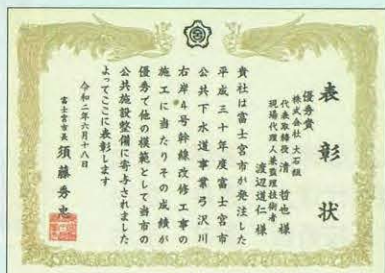 表彰状
優秀賞
株式会社 大石組
代表取締役 清 哲也 様
現場代理人兼監理技術者
渡辺道仁 様
貴社は富士宮市が発注した
平成三十年度富士宮市
公共下水道事業弓沢川
右岸4号幹線改修工事の
施工に当たりその成績が
優秀で他の模範として当市の
公共施設整備に寄与されました
よってここに表彰します
令和二年六月十八日
富士宮市長 須藤秀忠